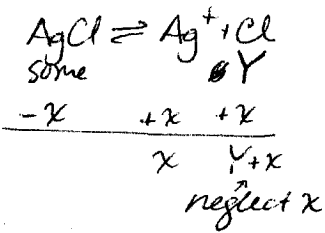 AgCl ⇌ Ag⁺ + Cl
some Y
-x +x +x
x Y+x
neglect x